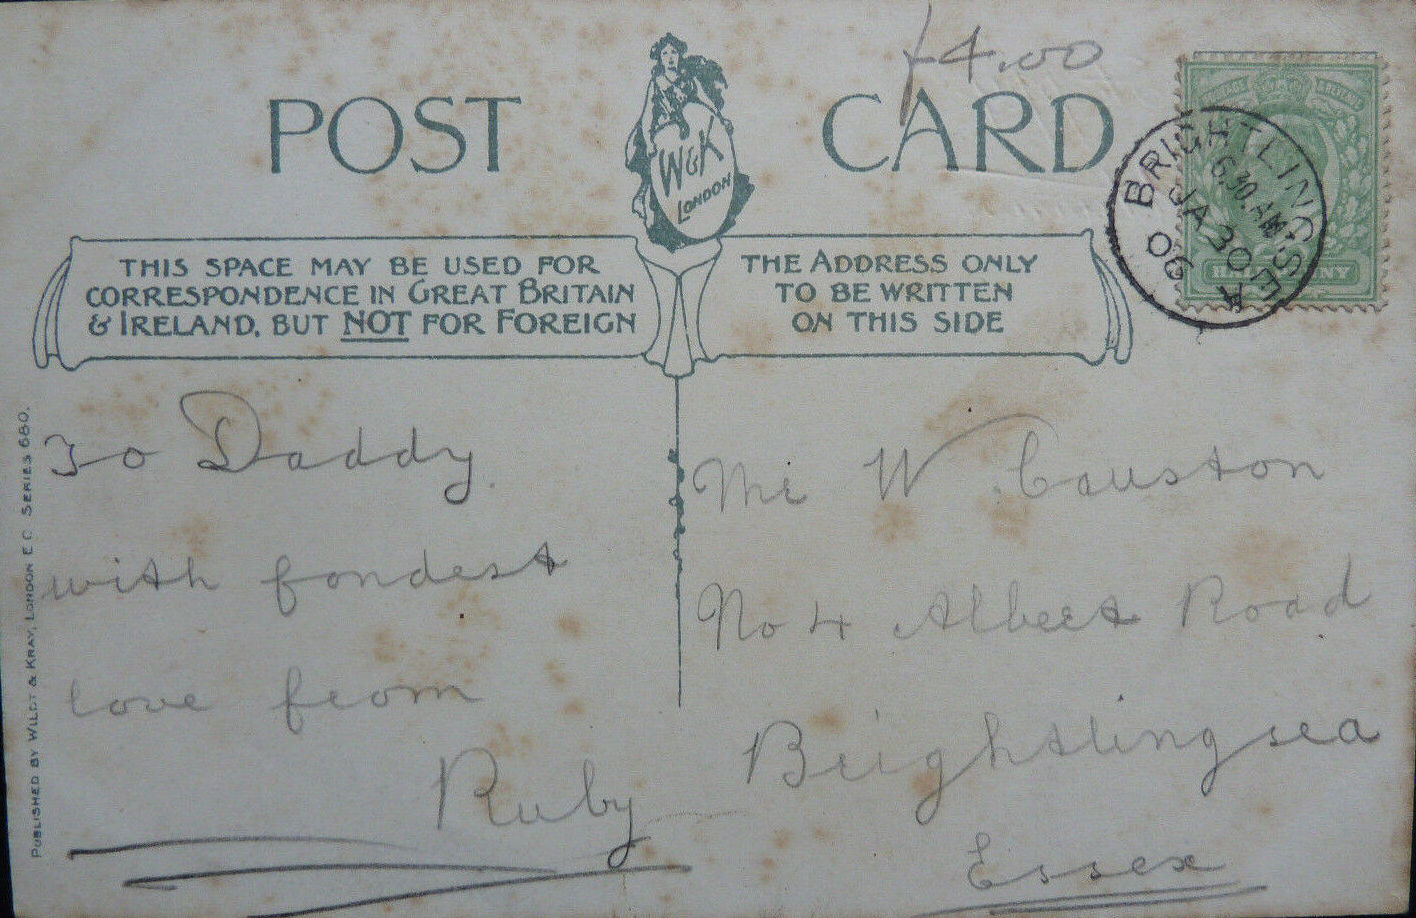 £4.00
POST CARD
W & K
LONDON
THIS SPACE MAY BE USED FOR
CORRESPONDENCE IN GREAT BRITAIN
& IRELAND, BUT NOT FOR FOREIGN
THE ADDRESS ONLY
TO BE WRITTEN
ON THIS SIDE
BRIGHTLINGSEA
6.30 AM
JA 30
06
A
To Daddy.
with fondest
love from
Ruby
Mr W. Causton
No 4 Albert Road
Brightlingsea
Essex
PUBLISHED BY WILDT & KRAY, LONDON E.C. SERIES 680.